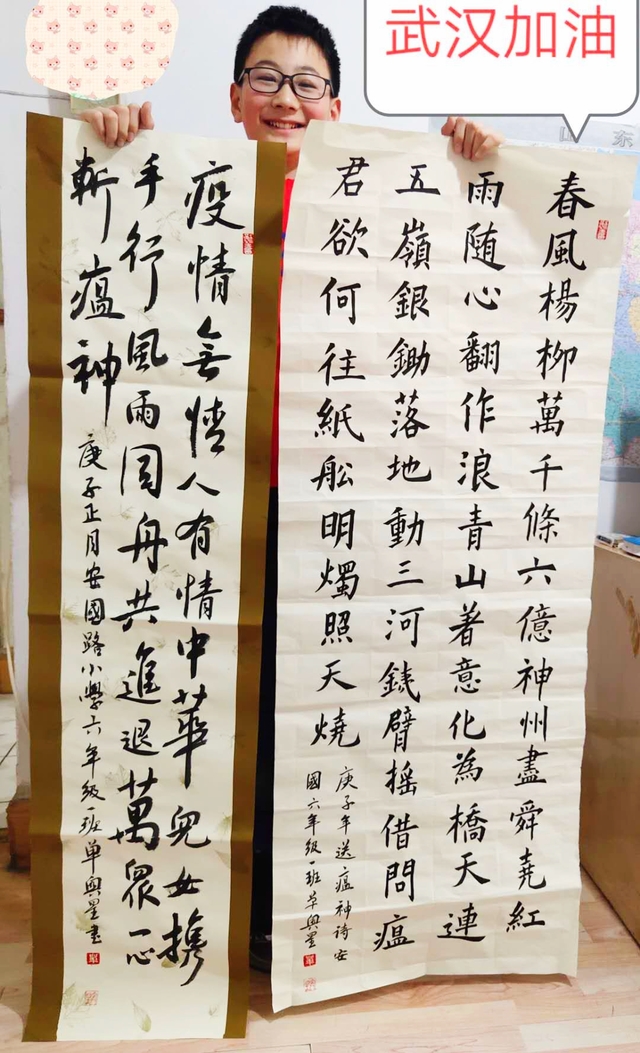 武汉加油
山 东
春風楊柳萬千條六億神州盡舜堯紅
雨随心翻作浪青山著意化為橋天連
五嶺銀鋤落地動三河銕臂摇借問瘟
君欲何往紙舩明燭照天燒
庚子年送瘟神詩安
國六年級一班单興星
疫情無情人有情中華兒女携
手行風雨同舟共進退萬眾一心
斬瘟神
庚子正月安國路小學六年級一班单興星書